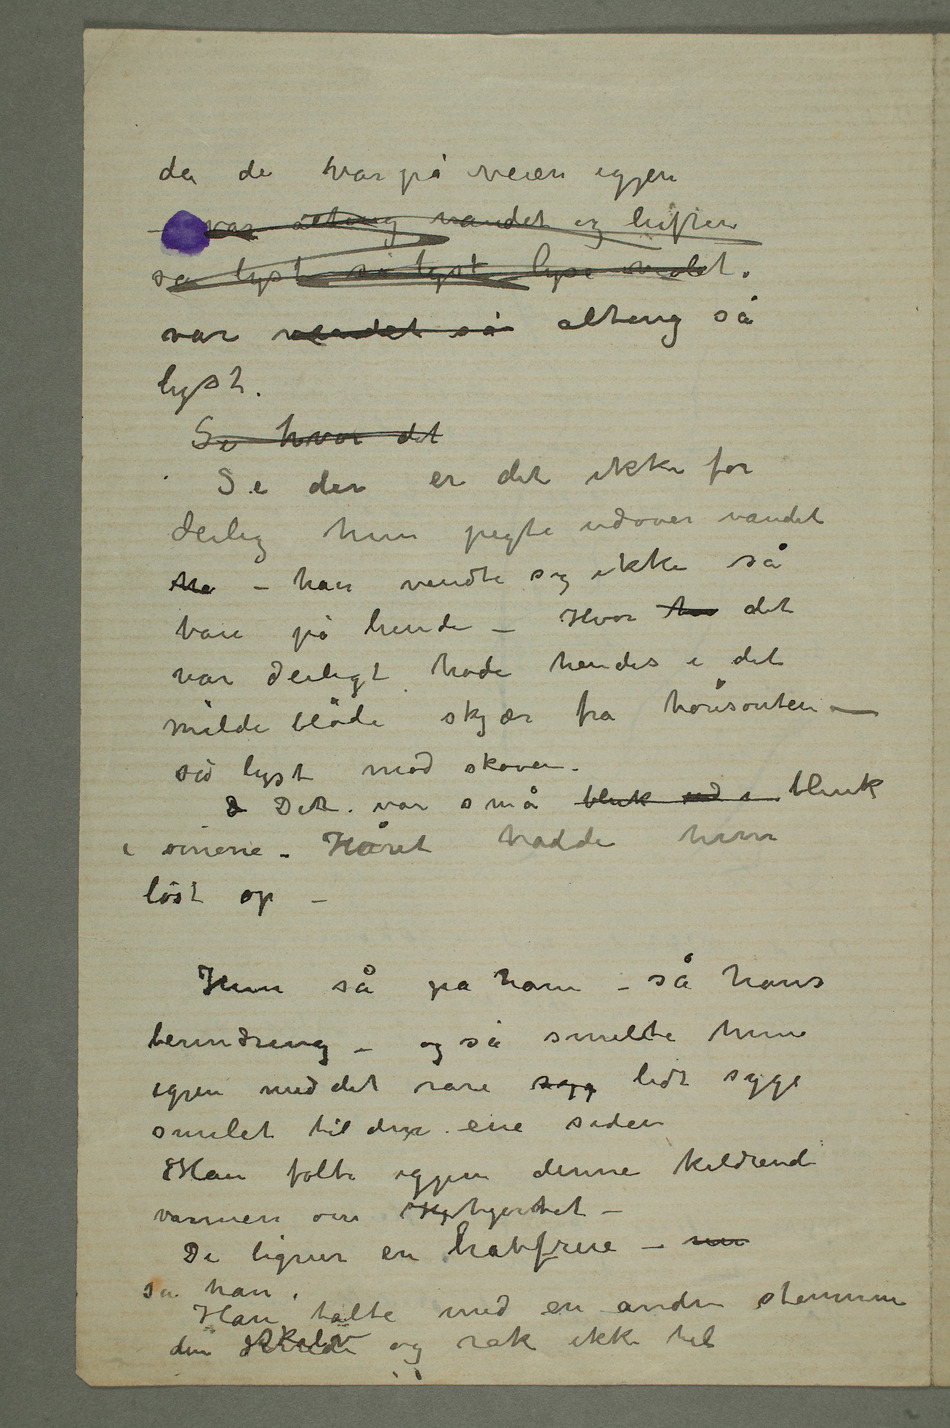 da de var på veien igjen
– var alting vandet og luften
så lyst så lyst lyse violet.
var vandet så alting så
lyst.
Se hvor det
Se der er det ikke for
deilig hun pegte udover vandet
ha – han vendte sig ikke så
bare på hende – Hvor ha det
var deiligt hode hendes i det
milde bløde skjær fra horisonten –
så lyst mod skoven.
D Det var små blink ud i blink
i øinene – Håret hadde hun
løst op –
Hun så på ham – så hans
beundring – og så smelte hun
igjen med det rare syg lidt syge
smilet til den ene siden
Han følte igjen denne kildrende
varmen om Hj hjertet –
De ligner en havfrue –
sa han.
Han talte med en anden stemme
den skalv og rak ikke til